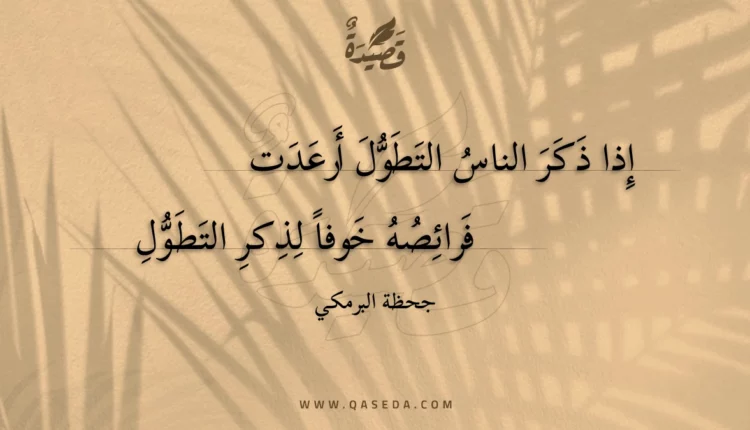 قَصِيدَةٌ
إِذا ذَكَرَ الناسُ التَطَوُّلَ أَرعَدَت
فَرائِصُهُ خَوفاً لِذِكرِ التَطَوُّلِ
جحظة البرمكي
WWW.QASEDA.COM